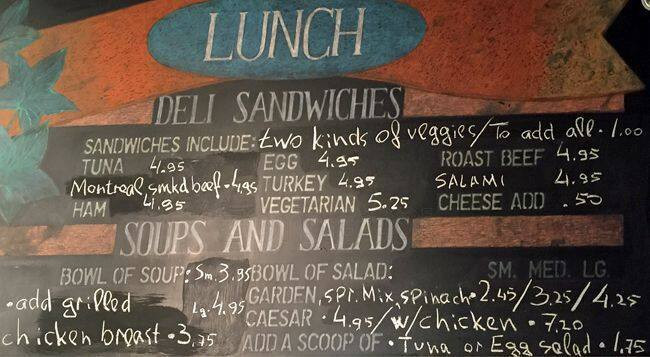 LUNCH
DELI SANDWICHES
SANDWICHES INCLUDE: two kinds of veggies/To add all · 1.00
TUNA 4.95 EGG 4.95 ROAST BEEF 4.95
Montreal smkd beef · 4.95 TURKEY 4.95 SALAMI 4.95
HAM 4.95 VEGETARIAN 5.25 CHEESE ADD .50
SOUPS AND SALADS
BOWL OF SOUP: Sm. 3.95 BOWL OF SALAD: SM. MED. LG.
· add grilled Lg. 4.95 GARDEN, SPr. Mix, Spinach · 2.45/3.25/4.25
chicken breast · 3.75 CAESAR · 4.95/w/chicken · 7.20
ADD A SCOOP OF · Tuna or Egg salad · 1.75